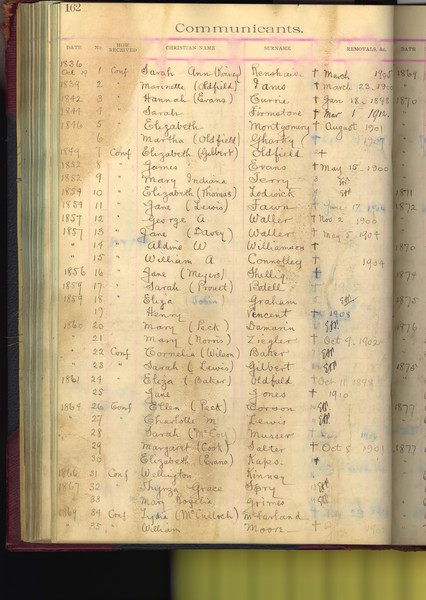 162
Communicants.
DATE No. HOW RECEIVED CHRISTIAN NAME SURNAME REMOVALS, &c. DATE
1836
Oct 19 1 Conf Sarah Ann (Kinney) Renshaw † March 1905 1869
1839 2 " Marinette (Oldfield) † March 23
1842 3 " Hannah (Evans) Currie † Jan 18 - 1898 1870
1844 4 " Sarah Firmstone † Mar 1
1846 5 " Elizabeth Montgomery † August 1901
6 " Martha (Oldfield)
1849 7 Conf Elizabeth (Gilbert) Oldfield †
1852 8 " James Evans † May 15 - 1900
1852 9 " Mary Indiana Terry
1854 10 " Elizabeth (Thomas) Lodwick 1871
1854 11 " Jane (Lewis) Fawn † June 17 1872
1857 12 " George A Waller † Nov 2 1900
1857 13 " Jane (Davey) Waller † May 5 - 1904
" 14 " W Williamson † 1870
" 15 " William A Connolley † 1904
1856 16 " Jane (Meyers) 1874
1859 17 " Sarah (Prout) Bdell
1859 18 " Eliza Graham 1875
17 " Henry Vincent † 1903
1860 20 " Mary (Peck) Damarin 1876
21 " Mary (Norris) Ziegler † Oct 9 - 1902
" 22 Conf Cornelia (Wilson) Baker
" 23 " Sarah (Lewis) Gilbert 1875
1861 24 " Eliza (Baker) Oldfield † Oct 1898
25 " Jane Jones † 1910
1864 26 Conf Ellen (Peck) Corson 1877
27 " Charlotte M Lewis
28 " Sarah Musser
29 " Margaret (Cook) Salter † Oct 8 1901 1877
30 " Elizabeth (Evans) Kapes
1866 31 Conf Wellington Kinney
1867 32 " Grace Spry
33 " Mary Grimes
1869 34 Conf Lydia (McCulloch) McFarland
" 35 " William Moon †